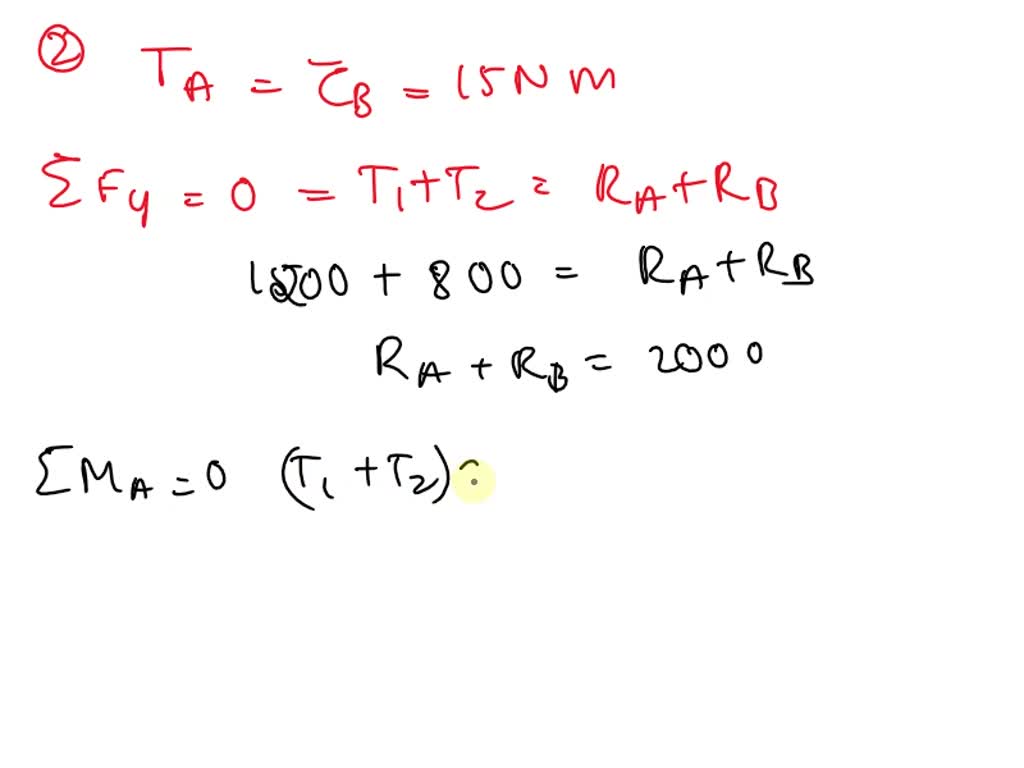 ② T_A = τ_B = 15 N m
ΣF_y = 0 = T_1 + T_2 = R_A + R_B
1200 + 800 = R_A + R_B
R_A + R_B = 2000
ΣM_A = 0 (T_1 + T_2)